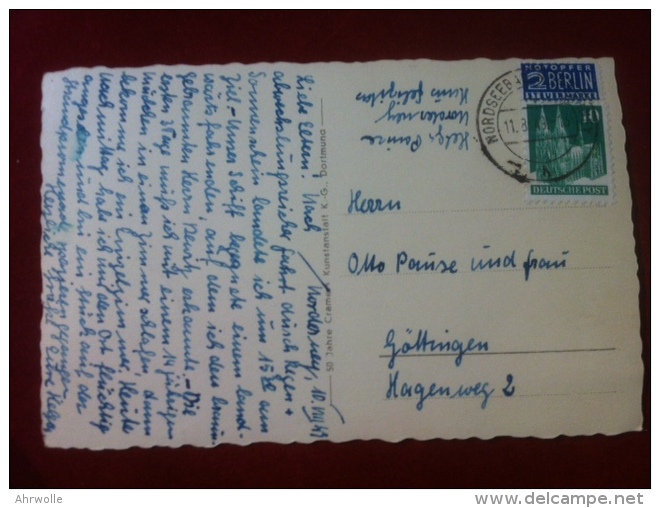 Norderney, 10. VIII 49
Liebe Eltern! Nach
abwechslungsreicher Fahrt durch Regen +
Sonnenschein landete ich um 15 am
Ziel. Unser Schiff begegnete einem land-
wärts fahrenden, auf dem ich den braun-
gebrannten Herrn erkannte. – Die
ersten Tage muß ich mit einem 14 jährigen
Mädchen in einem Zimmer schlafen, dann
bekomme ich ein Einzelzimmer. Heute
nachmittag habe ich mir den Ort flüchtig
angesehen und bin ein Stück auf der
Strandpromenade gegangen.
Herzliche Grüße Eure Helga
50 Jahre Cramers Kunstanstalt K.-G., Dortmund
Helga Pause
Norderney
Haus
NORDSEEB
11.8.
NOTOPFER
2 BERLIN
STEUERMARKE
10
DEUTSCHE POST
Herrn
Otto Pause und Frau
Göttingen
Hagenweg 2
Ahrwolle
www.delcampe.net